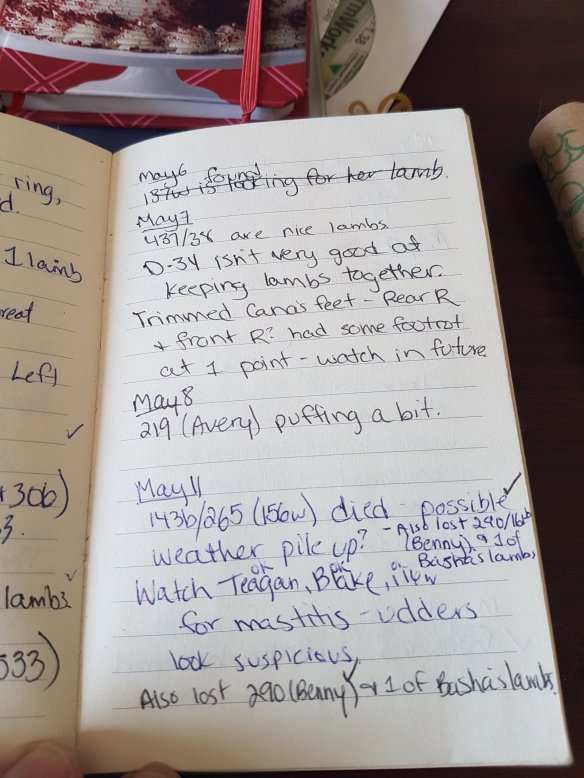 ring,
d.
1 lamb
reat
Left
+306)
3.
lambs
533)
May 6 found
137w is looking for her lamb.
May 7
437/38 are nice lambs
D-34 isn't very good at
keeping lambs together.
Trimmed Cana's feet - Rear R
+ front R? had some footrot
at 1 point - watch in future.
May 8
219 (Avery) puffing a bit.
May 11
143b/265 (156w) died - possible
weather pile up?
- Also lost 290/
(Benny) & 1 of
Basha's lambs
ok ok ok
Watch Teagan, Blake, 114w
for mastitis - udders
look suspicious,
Also lost 290 (Benny) & 1 of Basha's lambs.